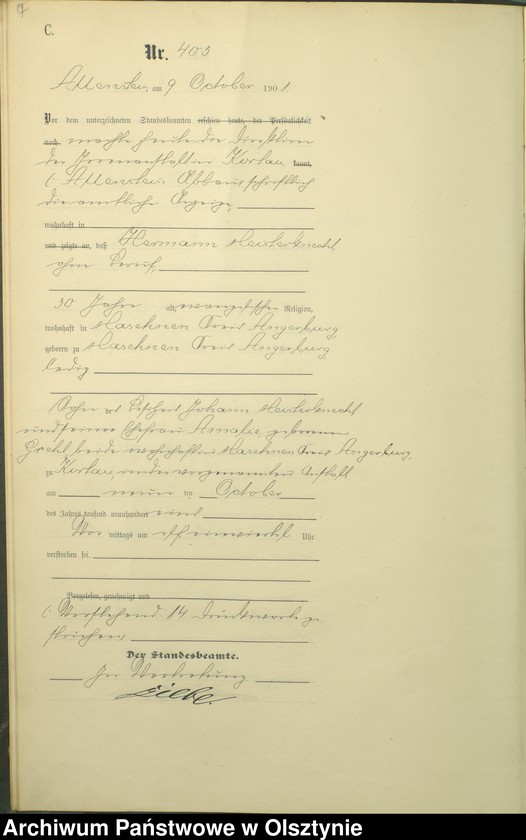 7
C.
Nr. 403
Allenstein am 9 October 1901.
Vor dem unterzeichneten Standesbeamten erschien heute, der Persönlichkeit
nach machte heute die Direktion
der Irrenanstalt in Kortau kannt,
Allenstein schriftlich
die amtliche Anzeige,
wohnhaft in
und zeigte an, daß Hermann Meisterknecht
ohne Beruf,
30 Jahre alt, evangelischer Religion,
wohnhaft in Kreis Angerburg,
geboren zu Kreis Angerburg,
ledig
Sohn des Johann Meisterknecht
und seiner Ehefrau Amalie, geborenen
beide wohnhaft in Kreis Angerburg,
zu Kortau, in der vorgenannten Anstalt
am neun ten October
des Jahres tausend neunhundert eins
Vor mittags um elf einviertel Uhr
verstorben sei.
Vorgelesen, genehmigt und
Vorstehend 14 Druckworte ge-
strichen.
Der Standesbeamte.
In Vertretung
Archiwum Państwowe w Olsztynie